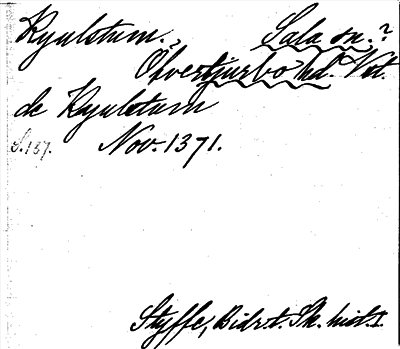 Kyulstum. Sala sn.?
? Öfvertjurbo hd. Vstm.
de Kyulstum
S. 157. Nov. 1371.
Styffe, Bidr. t. Sk. hist. I.